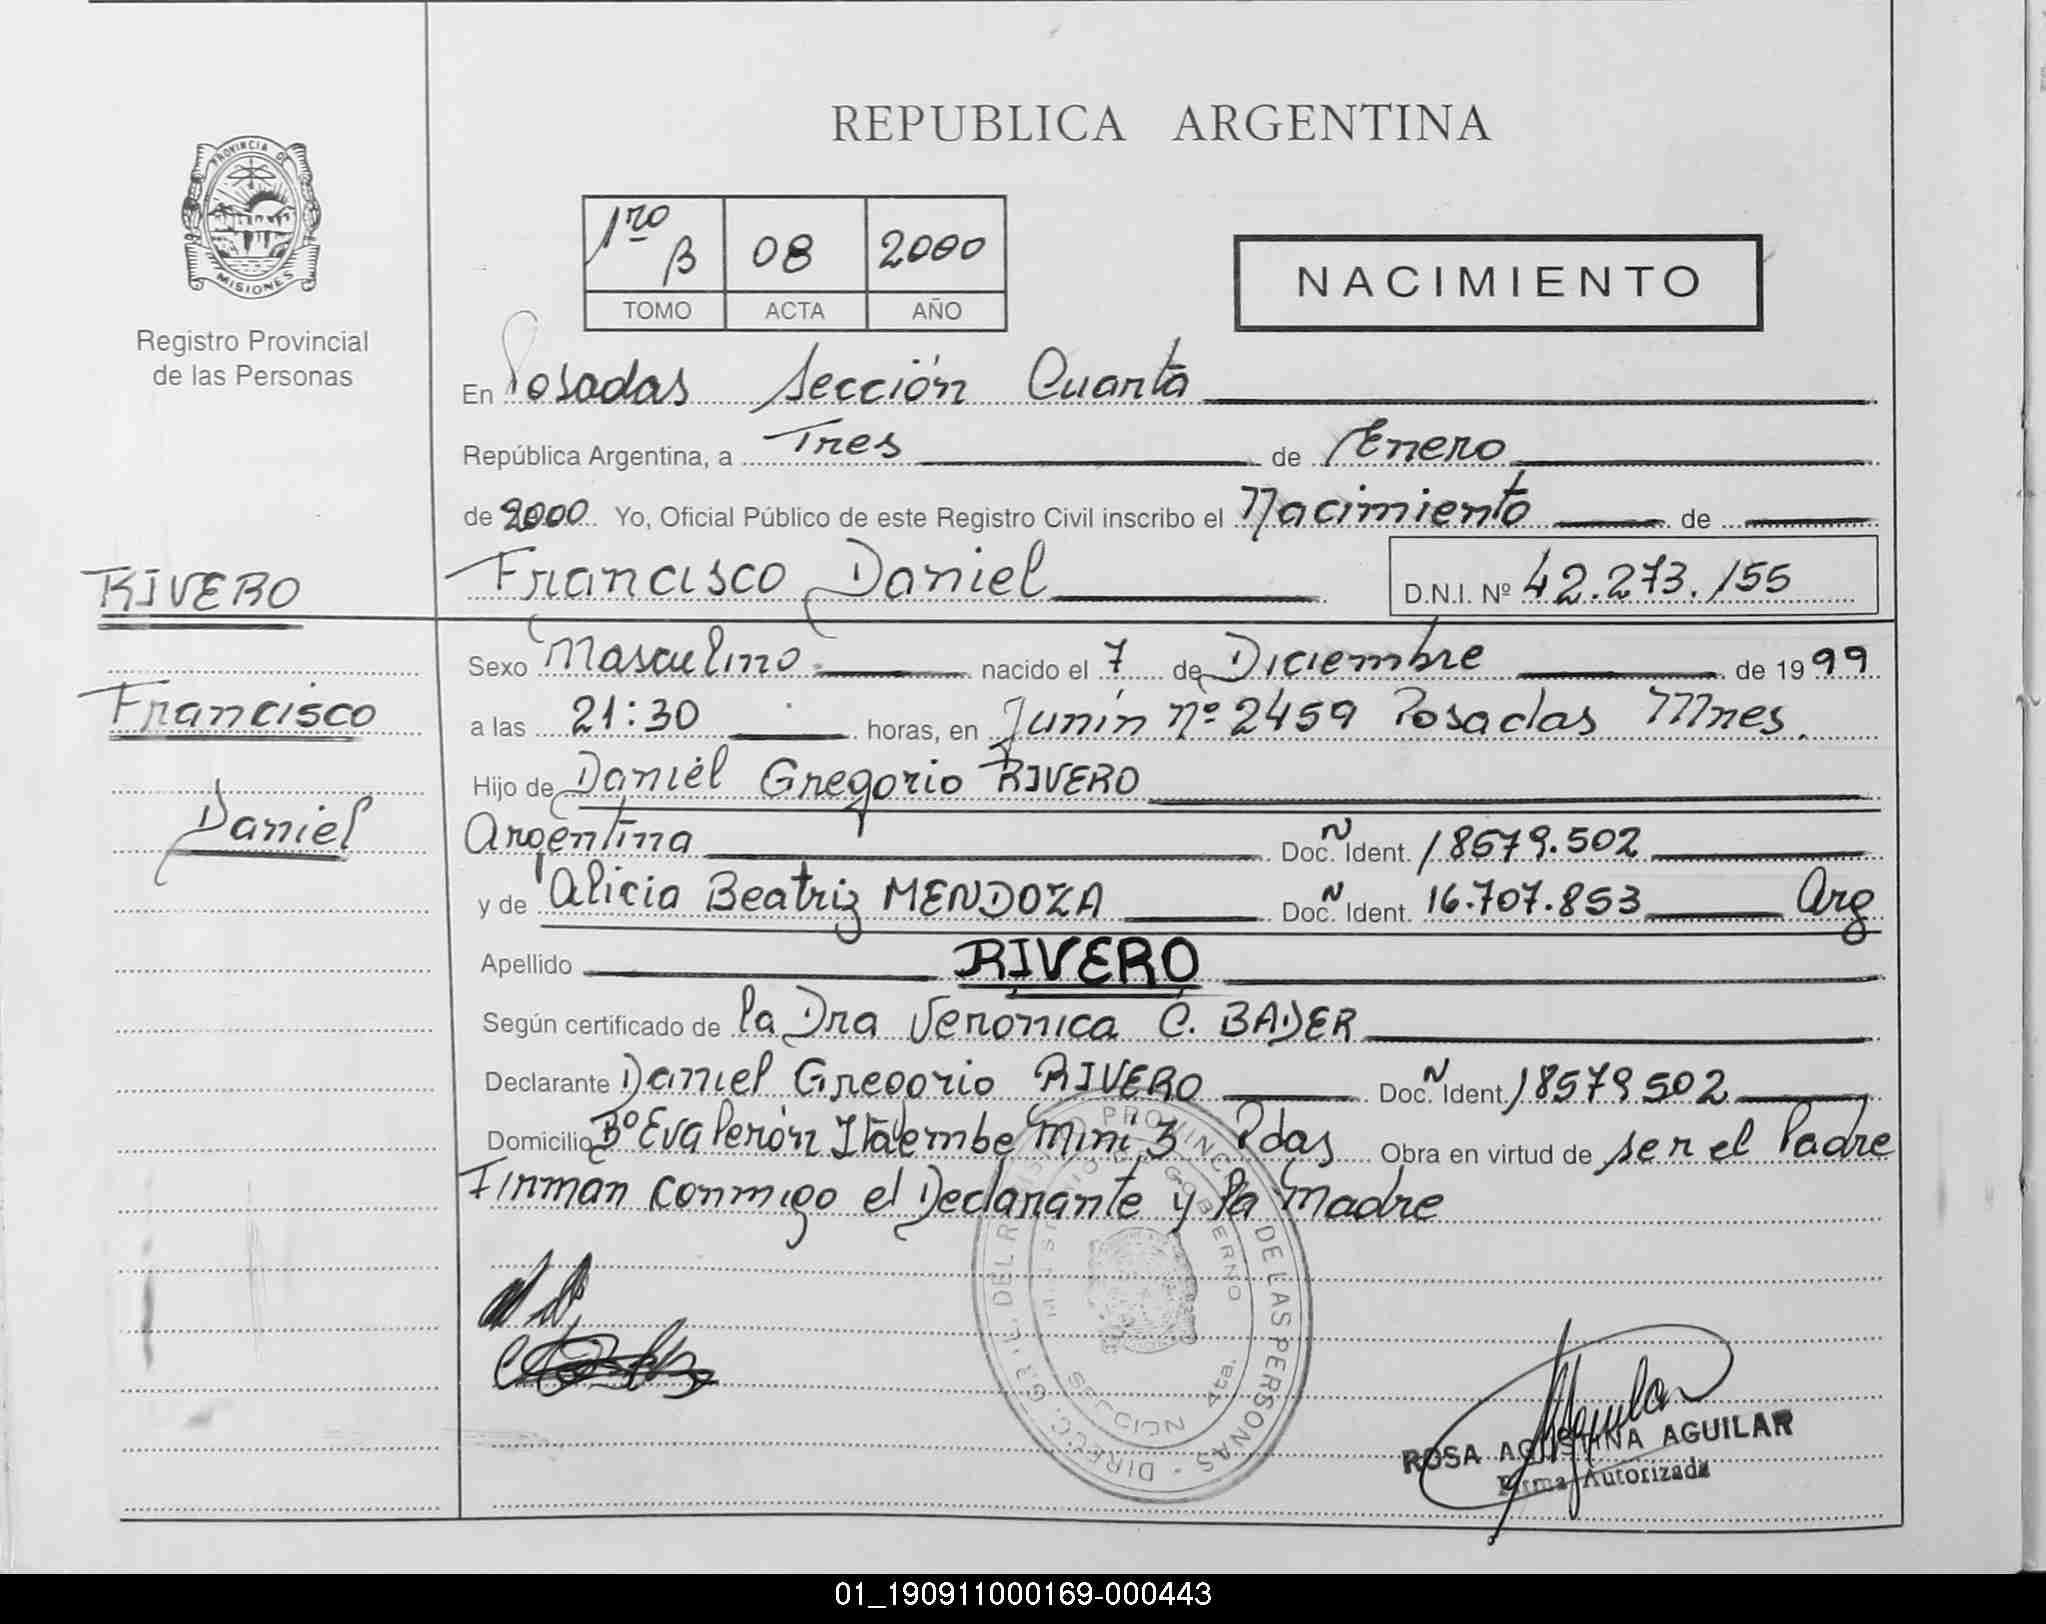 PROVINCIA DE
MISIONES
Registro Provincial
de las Personas
REPUBLICA ARGENTINA
1ro B 08 2000
TOMO ACTA AÑO
NACIMIENTO
En Posadas Sección Cuarta
República Argentina, a Tres de Enero
de 2000 Yo, Oficial Público de este Registro Civil inscribo el Nacimiento de
RIVERO
Francisco Daniel D.N.I. Nº 42.273.155
Sexo Masculino nacido el 7 de Diciembre de 1999
Francisco
a las 21:30 horas, en Junín nº 2459 Posadas Mnes.
Hijo de Daniel Gregorio RIVERO
Daniel
Argentina Doc. N Ident. 18579.502
y de Alicia Beatriz MENDOZA Doc. N Ident. 16.707.853 Arg
Apellido RIVERO
Según certificado de la Dra Veronica C. BADER
Declarante Daniel Gregorio RIVERO Doc. N Ident. 18579502
Domicilio Bº Eva Perón Itaembe Mini 3 Pdas Obra en virtud de ser el Padre
Firman conmigo el Declarante y la Madre
DIRECC. GR'L. DEL REGISTRO PROVINCIAL DE LAS PERSONAS
MINISTERIO DE GOBIERNO
SECCION 4ta.
ROSA AGUSTINA AGUILAR
Firma Autorizada
01_190911000169-000443